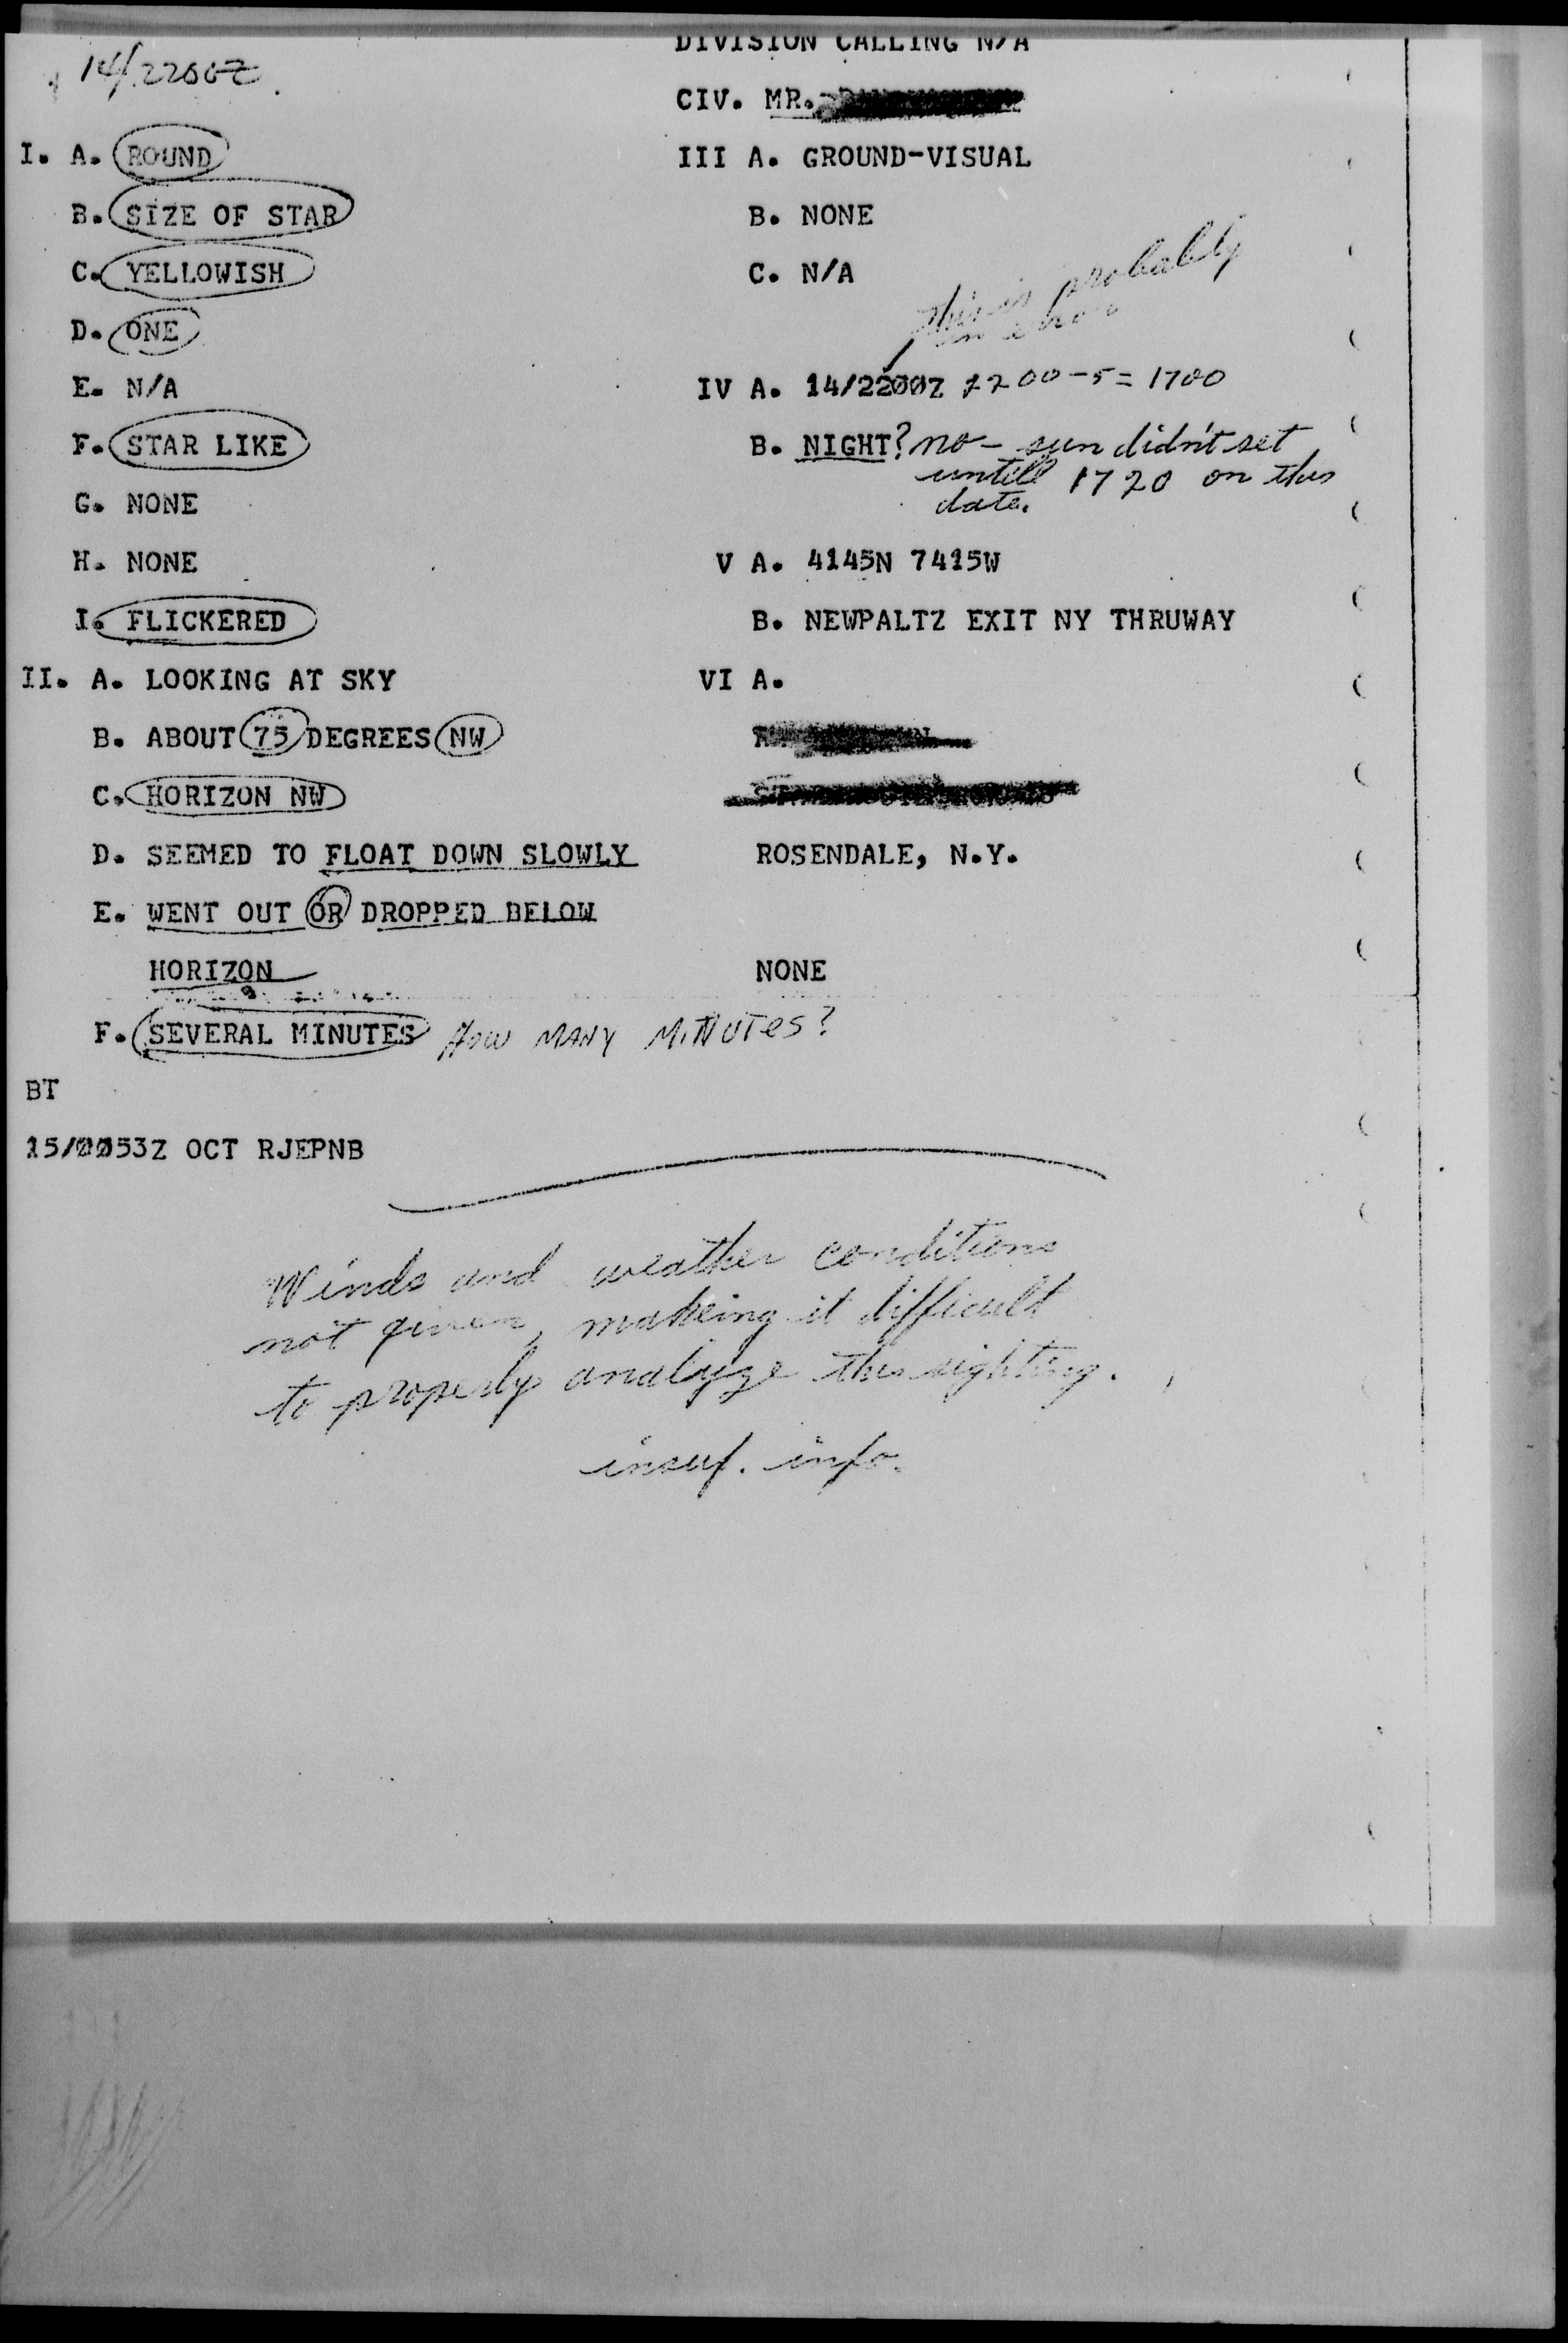 DIVISION CALLING N/A
14/2200Z
CIV. MR.
I. A. ROUND
B. SIZE OF STAR
C. YELLOWISH
D. ONE
E. N/A
F. STAR LIKE
G. NONE
H. NONE
I. FLICKERED
II. A. LOOKING AT SKY
B. ABOUT 75 DEGREES NW
C. HORIZON NW
D. SEEMED TO FLOAT DOWN SLOWLY
E. WENT OUT OR DROPPED BELOW
HORIZON
F. SEVERAL MINUTES How MANY MiNUTes?
III A. GROUND-VISUAL
B. NONE
C. N/A
this is probably
in error
IV A. 14/2200Z 2200-5=1700
B. NIGHT? no - sun didn't set
untill 1720 on this
date.
V A. 4145N 7415W
B. NEWPALTZ EXIT NY THRUWAY
VI A.
ROSENDALE, N.Y.
NONE
BT
15/0053Z OCT RJEPNB
Winds and weather conditions
not given, makeing it difficult
to properly analyze this sighting.
insuf. info.